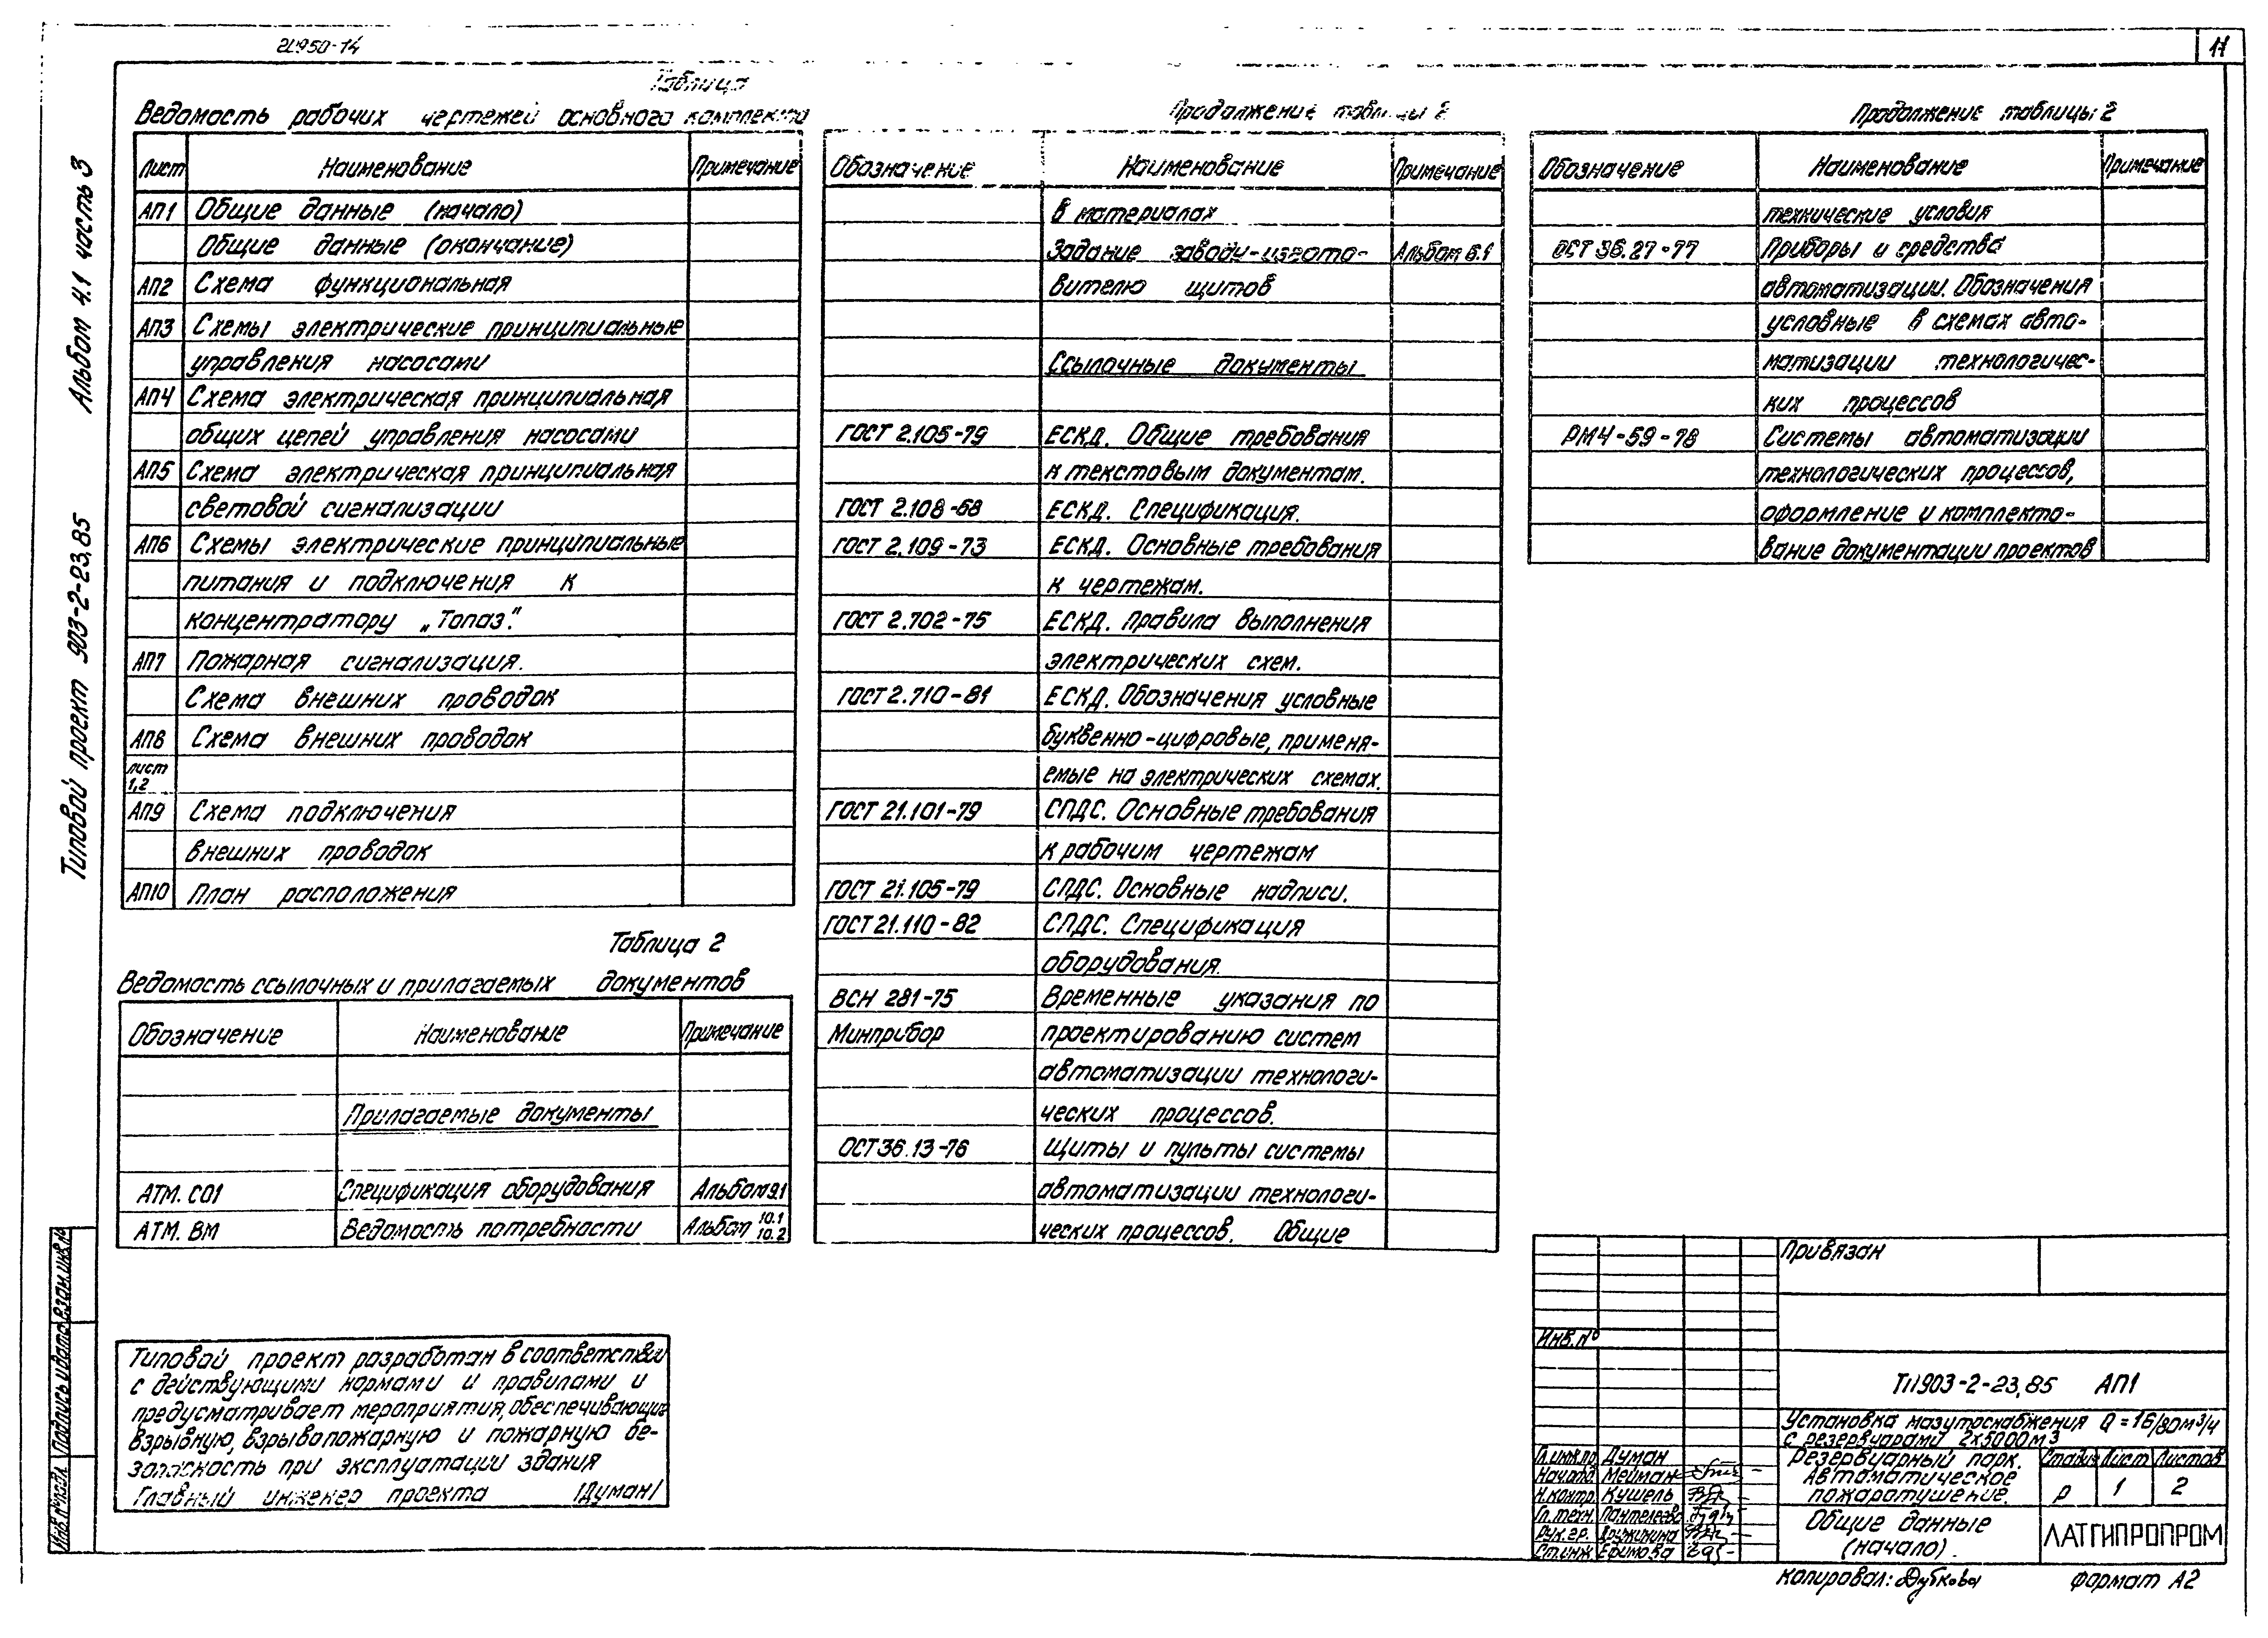 11
Альбом 4.1 часть 3
Типовой проект 903-2-23.85
Таблица
Ведомость рабочих чертежей основного комплекта
Лист Наименование Примечание
АП1 Общие данные (начало)
Общие данные (окончание)
АП2 Схема функциональная
АП3 Схемы электрические принципиальные
управления насосами
АП4 Схема электрическая принципиальная
общих цепей управления насосами
АП5 Схема электрическая принципиальная
световой сигнализации
АП6 Схемы электрические принципиальные
питания и подключения к
концентратору „Топаз".
АП7 Пожарная сигнализация.
Схема внешних проводок
АП8 Схема внешних проводок
лист
1,2
АП9 Схема подключения
внешних проводок
АП10 План расположения
Таблица 2
Ведомость ссылочных и прилагаемых документов
Обозначение Наименование Примечание
Прилагаемые документы
АТМ. СО1 Спецификация оборудования Альбом 9.1
АТМ. ВМ Ведомость потребности Альбом 10.1
10.2
Продолжение таблицы 2
Обозначение Наименование Примечание
в материалах
Задание заводу-изгото- Альбом 6.1
вителю щитов
Ссылочные документы
ГОСТ 2.105-79 ЕСКД. Общие требования
к текстовым документам.
ГОСТ 2.108-68 ЕСКД. Спецификация.
ГОСТ 2.109-73 ЕСКД. Основные требования
к чертежам.
ГОСТ 2.702-75 ЕСКД. Правила выполнения
электрических схем.
ГОСТ 2.710-81 ЕСКД. Обозначения условные
буквенно-цифровые, применя-
емые на электрических схемах.
ГОСТ 21.101-79 СПДС. Основные требования
к рабочим чертежам
ГОСТ 21.105-79 СПДС. Основные надписи.
ГОСТ 21.110-82 СПДС. Спецификация
оборудования.
ВСН 281-75 Временные указания по
Минприбор проектированию систем
автоматизации технологи-
ческих процессов.
ОСТ 36.13-76 Щиты и пульты системы
автоматизации технологи-
ческих процессов. Общие
Продолжение таблицы 2
Обозначение Наименование Примечание
технические условия
ОСТ 36.27-77 Приборы и средства
автоматизации. Обозначения
условные в схемах авто-
матизации технологичес-
ких процессов
РМ4-59-78 Системы автоматизации
технологических процессов,
оформление и комплекто-
вание документации проектов
Типовой проект разработан в соответствии
с действующими нормами и правилами и
предусматривает мероприятия, обеспечивающие
взрывную, взрывопожарную и пожарную бе-
зопасность при эксплуатации здания
Главный инженер проекта /Думан/
Инв.№ подл. Подпись и дата Взам.инв.№
Привязан
Инв.№
ТП 903-2-23.85 АП1
Установка мазутоснабжения Q=16/80м3/ч
с резервуарами 2х5000м3
Гл.инж.пр. Думан
Нач.отд. Мейман
Н.контр. Кушель
Гл.техн. Пантелеева
Рук.гр. Дружинина
Ст.инж. Ефимова
Резервуарный парк.
Автоматическое
пожаротушение.
Стадия Лист Листов
Р 1 2
Общие данные
(начало).
ЛАТГИПРОПРОМ
Копировал: Дубкова Формат А2